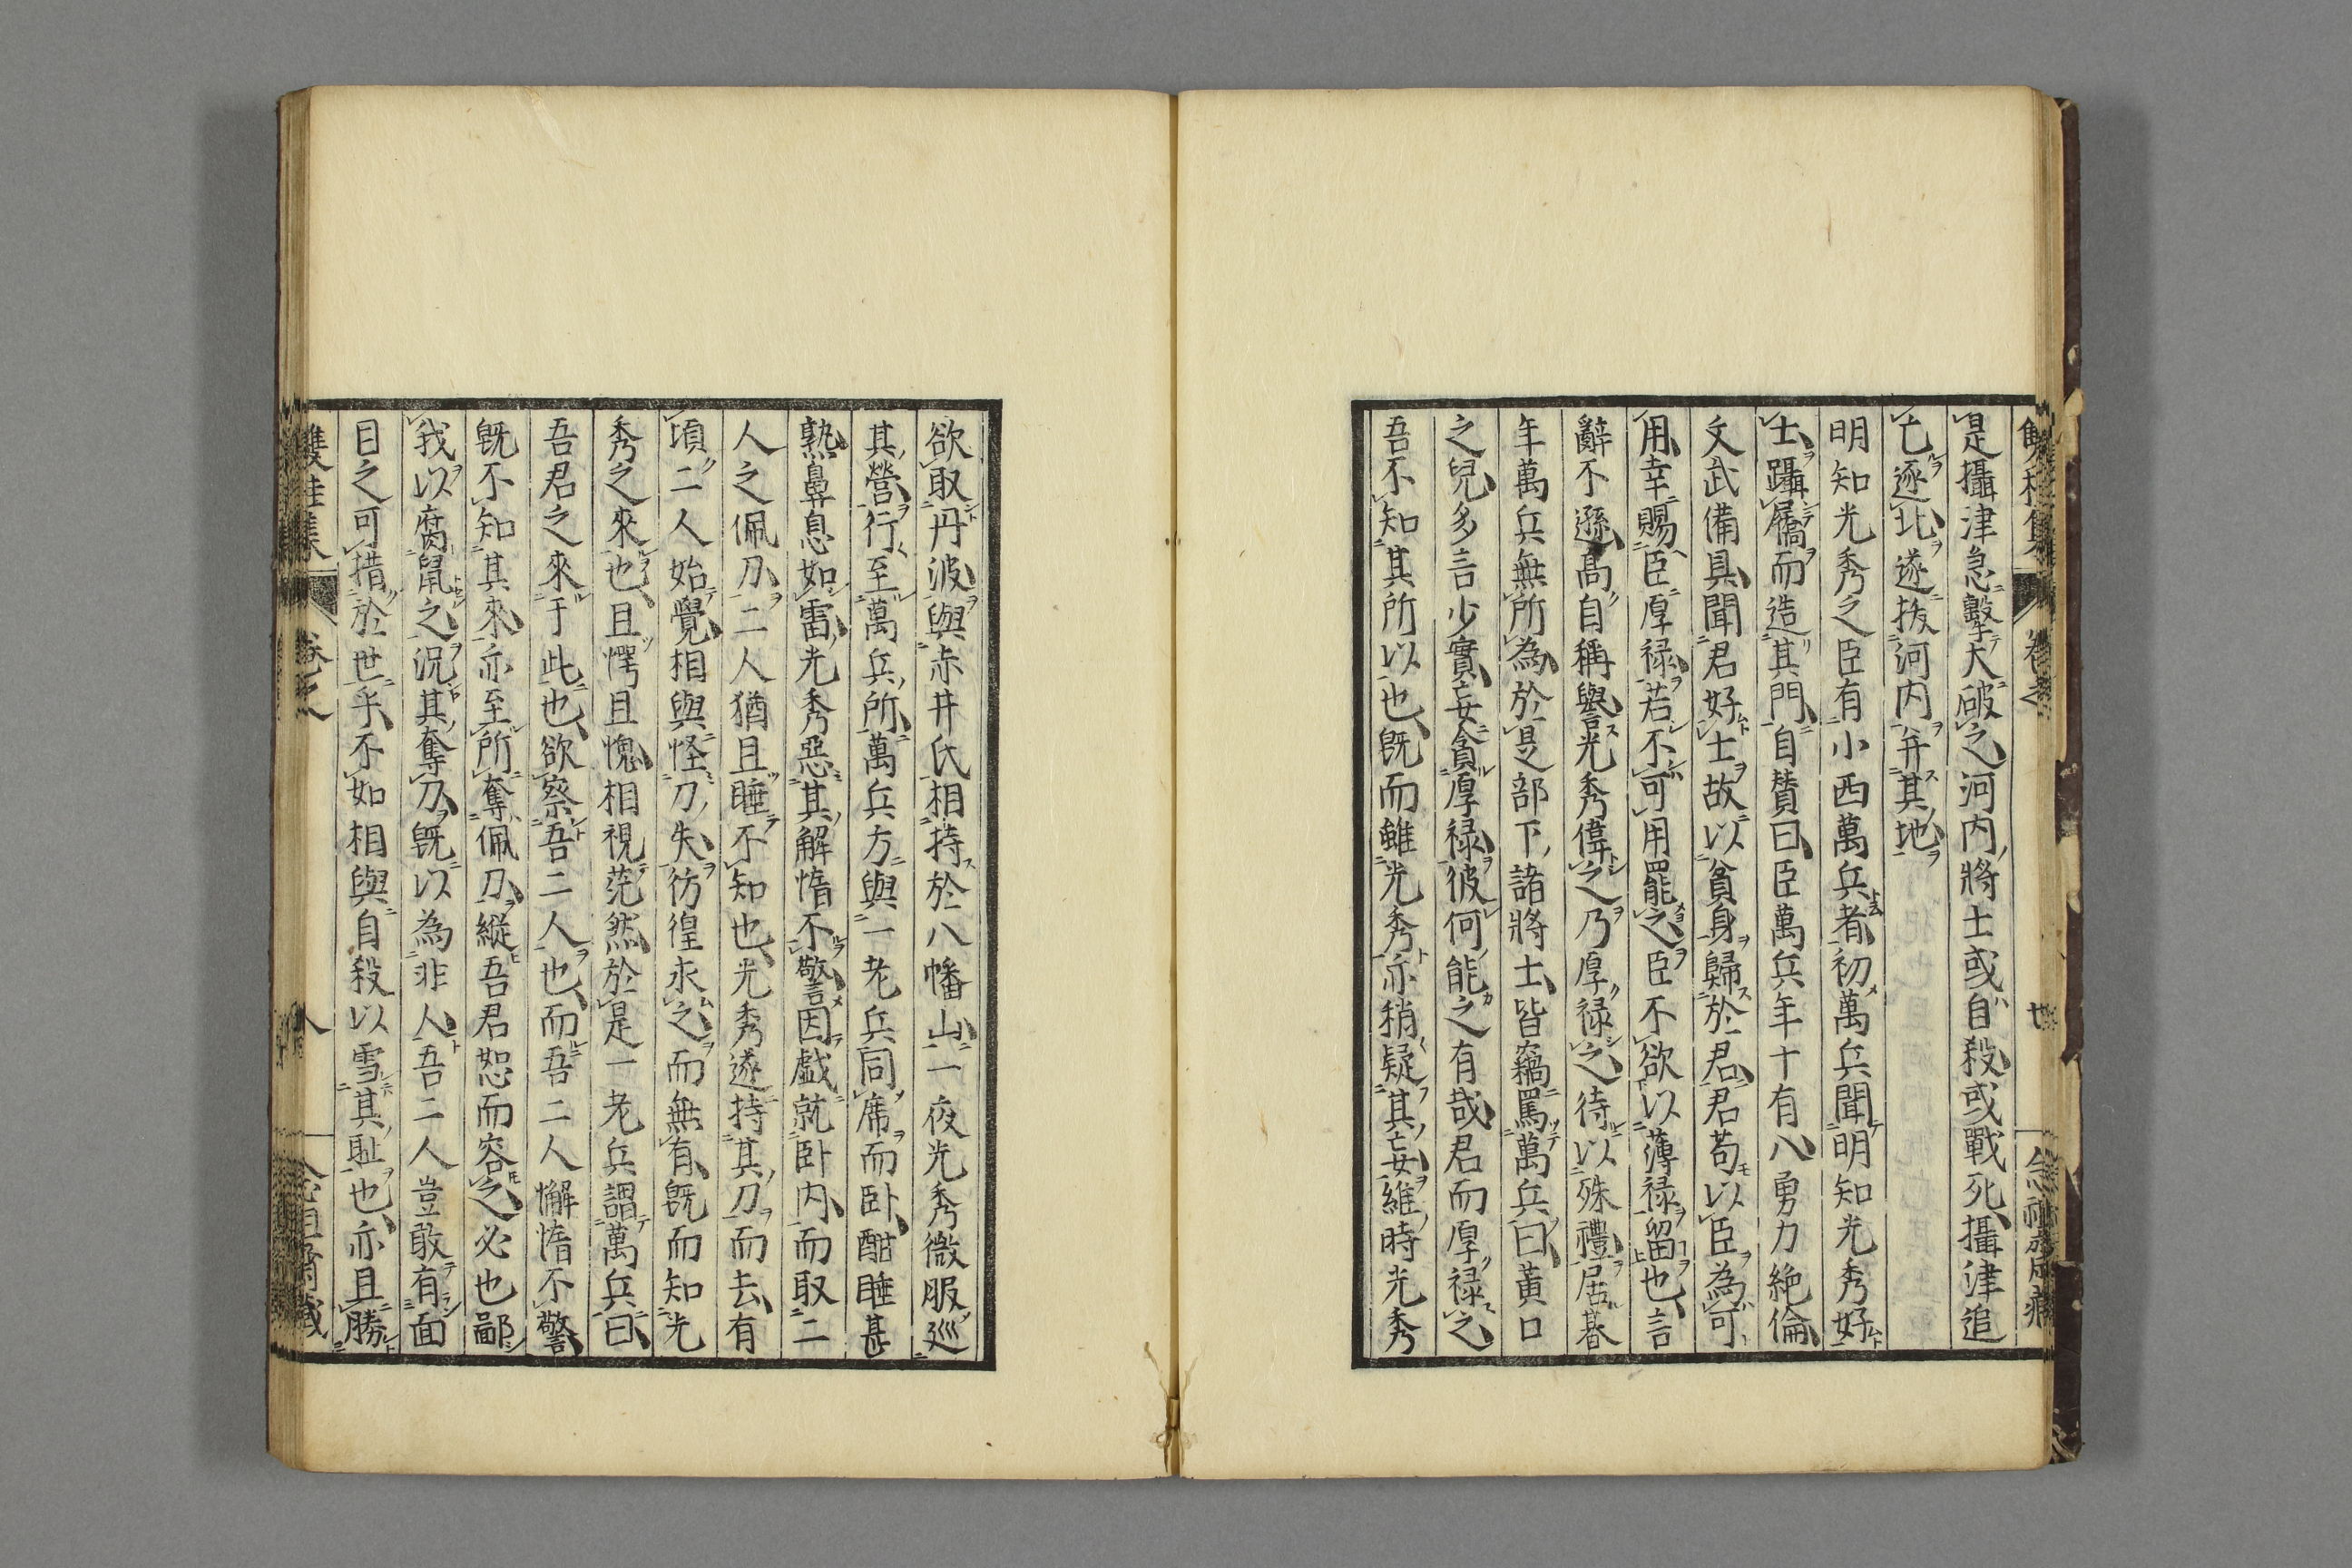 是攝津急擊大破之河內將士或自殺或戰死攝津追
亡逐北遂拔河內幷其地
明知光秀之臣有小西萬兵者初萬兵聞明知光秀好
士躡屩而造其門自贊曰臣萬兵年十有八勇力絕倫
文武備具聞君好士故以貧身歸於君君苟以臣為可
用幸賜臣厚祿若不可用罷之臣不欲以薄祿留也言
辭不遜高自稱譽光秀偉之乃厚祿之待以殊禮居暮
年萬兵無所為於是部下諸將士皆竊罵萬兵曰黃口
之兒多言少實妄貪厚祿彼何能之有哉君而厚祿之
吾不知其所以也旣而雖光秀亦稍疑其妄維時光秀
欲取丹波與赤井氏相持於八幡山一夜光秀微服巡
其營行至萬兵所萬兵方與一老兵同席而臥酣睡甚
熟鼻息如雷光秀惡其解惰不警因戲就臥內而取二
人之佩刀二人猶且睡不知也光秀遂持其刀而去有
頃二人始覺相與怪刀失彷徨求之而無有旣而知光
秀之來也且愕且愧相視茫然於是一老兵謂萬兵曰
吾君之來于此也欲察吾二人也而吾二人懈惰不警
旣不知其來亦至所奪佩刀縱吾君恕而容之必也鄙
我以腐鼠之況其奪刀旣以為非人吾二人豈敢有面
目之可措於世乎不如相與自殺以雪其恥也亦且勝